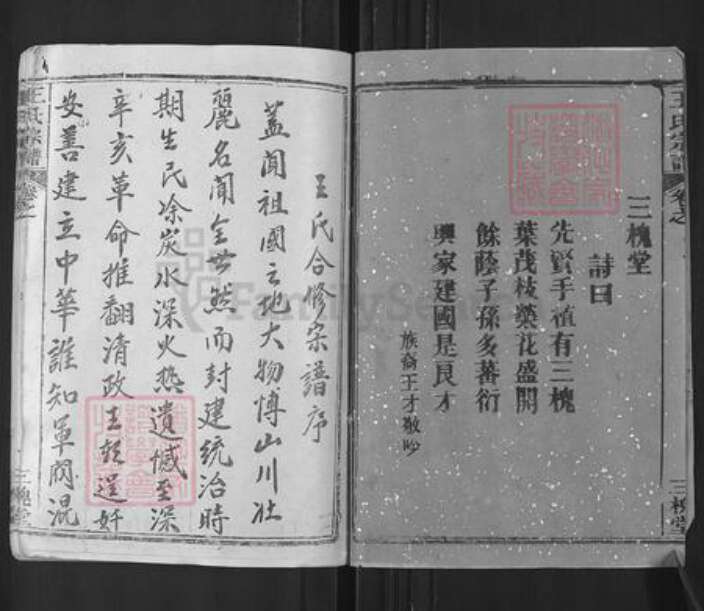 三槐堂
詩曰
先賢手植有三槐
葉茂枝榮花盛開
餘蔭子孫多蕃衍
興家建國是良才
族裔王才敬吟
王氏宗譜
卷之
三槐堂
王氏合修宗譜序
蓋聞祖國之地大物博山川壯
麗名聞全世然而封建統治時
期生民塗炭水深火熱遺憾至深
辛亥革命推翻清政王朝逞奸
安善建立中華誰知軍閥混
王氏宗譜
卷之一
三槐堂
FamilySearch